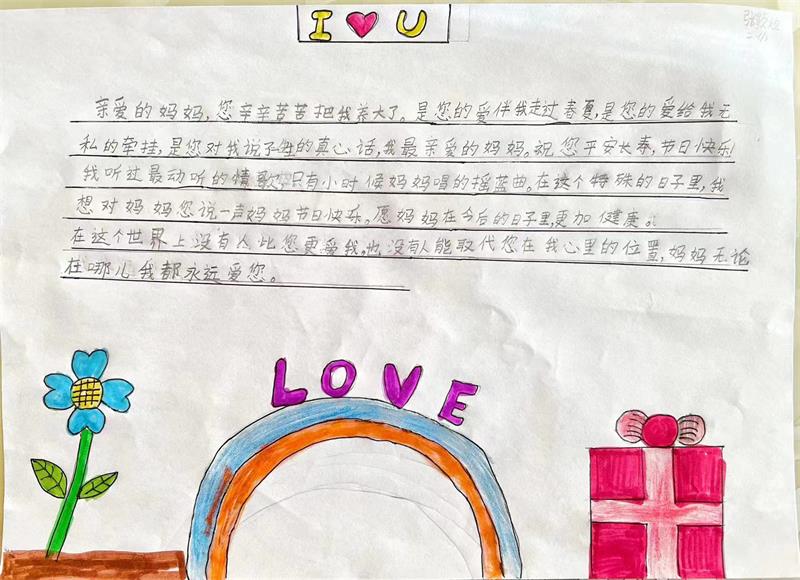 I ❤ U
亲爱的妈妈,您辛辛苦苦把我养大了。是您的爱伴我走过春夏,是您的爱给我无
私的牵挂,是您对我说了的真心话,我最亲爱的妈妈。祝您平安长寿,节日快乐!
我听过最动听的情歌,只有小时候妈妈唱的摇蓝曲。在这个特殊的日子里,我
想对妈妈您说一声妈妈节日快乐。愿妈妈在今后的日子里,更加健康。
在这个世界上没有人比您更爱我。也没有人能取代您在我心里的位置,妈妈无论
在哪儿我都永远爱您。
LOVE